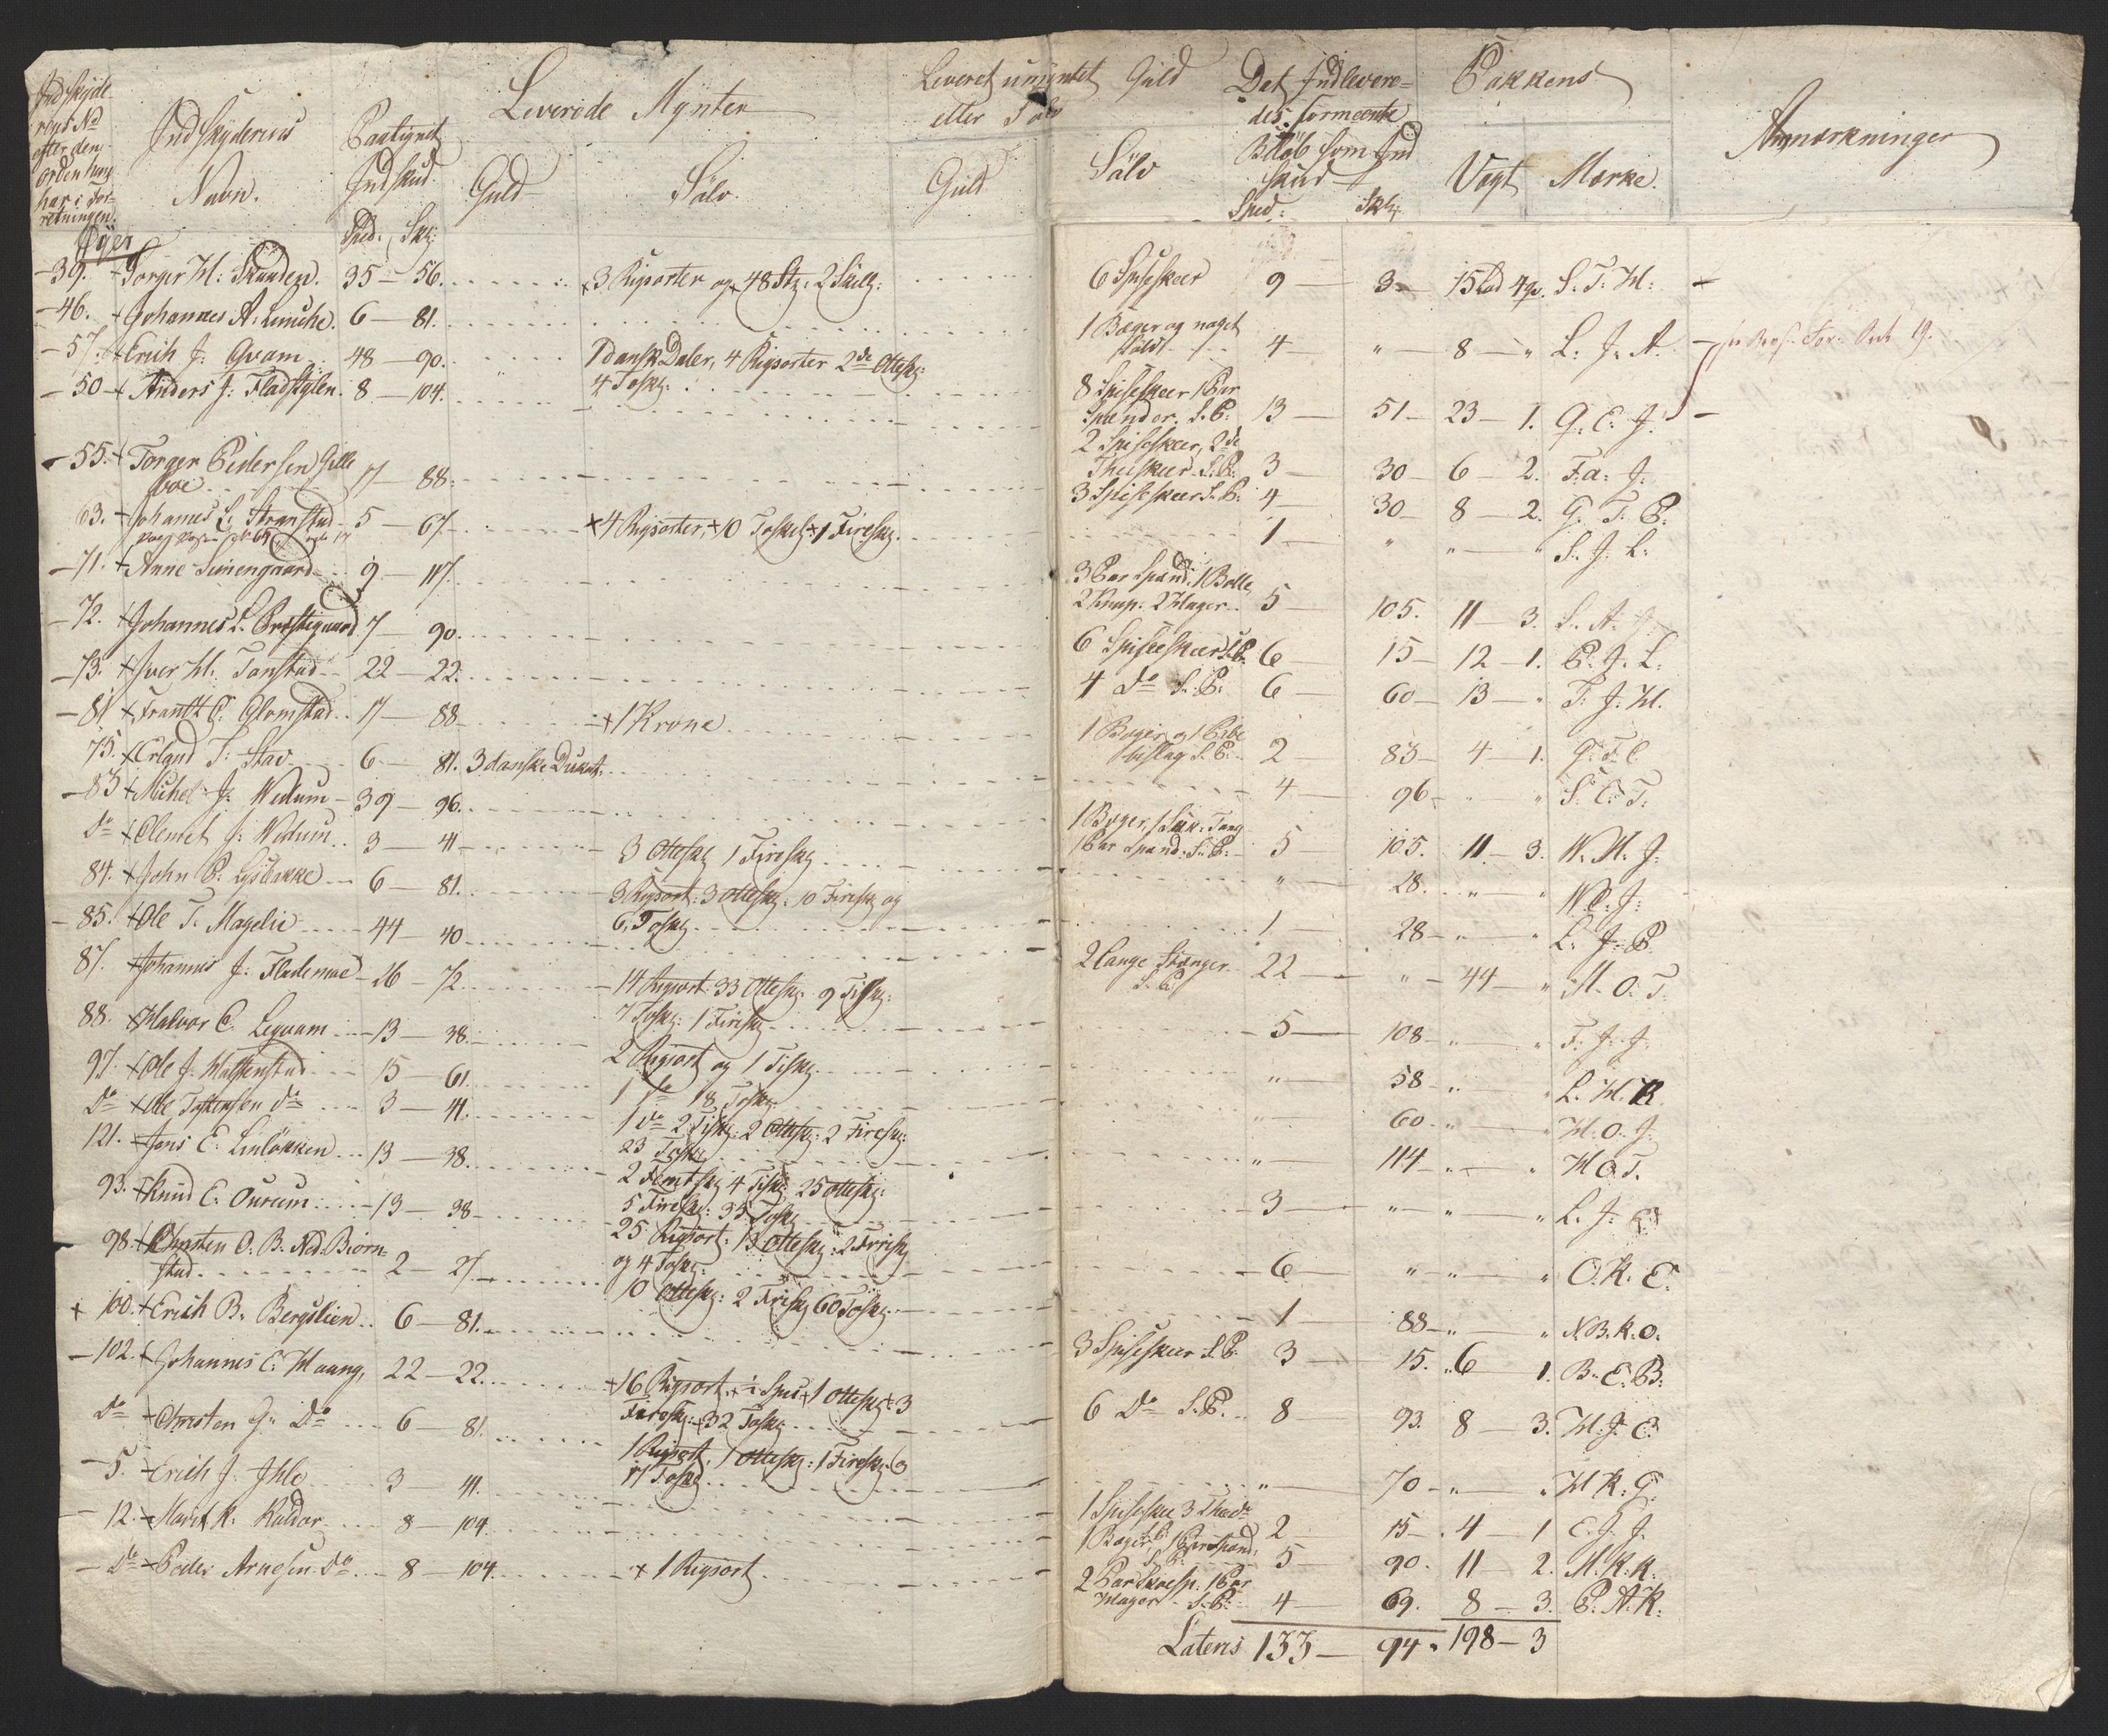 Indskyde
rens No
efter den
Orden hung
har i For=
retningen.
Indskyderens
Navn.
Paalignet
Indskud.
Spd: Skz:
Leverede Mynter
Guld Sölv.
Leveret umyntet Guld
eller Sölv
Guld
Sölv
Det Indlevere=
des formeente
Belöb som Ind
skud
Spd: Skz:
Pakkens
Vægt Mærke.
Anmærkninger
Öÿer
39. Torger H: Skunden. 35 – 56. 3 Rigsorter og 48 Stz: 2 Skillz: 6 Spiseskeer 9 – 3 – 15 Lod 4 qv. S. T. H:
46. Johannes A: Lunche. 6 – 81. 1 Bæger og noget Sölv 4 – " – 8 – " L. J. A.
57. Erich J: Qvam 48 – 90. 1 dansk Daler, 4 Rigsorter 2de Otteskz: 4 Toskz: 8 Spiseskeer 1 Par Spænder. S. P: 13 – 51 – 23 – 1. Q. E. J.
50 Anders J: Fladstylen. 8 – 104. 2 Spiseskeer, 2de Theeskeer S. P: 3 – 30 – 6 – 2. F. a: J.
55. Torger Pedersen Gille boe 17 – 88. 3 Spiseskeer S. P: 4 – 30 – 8 – 2. G. T. P:
63. Johannes L. Stranstad 5 – 67. 4 Rigsorter, 10 Toskz 1 Fireskz. 1 – " – " – " S. J. L:
71. Anne Sunengaard 9 – 117. 3 Par Spænd: 1 Bolle 2 Knap: 2 Mager 5 – 105. 11 – 3. S. A.
72. Johannes L. Præstegaard 7 – 90. 6 Spiseskeer S. P: 6 – 15 – 12 – 1. P. J. L:
73. Iver H. Tanstad 22 – 22. 4 Do S. P: 6 – 60 – 13 – " T. J. H.
81 Frantz C. Glomstad 17 – 88 1 Krone 1 Bæger og 1 Pibe beslag S. P: 2 – 83 – 4 – 1. G. F. C
75. Erland T: Stav 6 – 81. 3 danske Dukat: 4 – 96 – " – " S. E. T:
83 Michel J: Wedum 39 – 96. 1 Bæger, 1 Suk: Tang 1 Par Spænd: S. P: 5 – 105. 11 – 3. W. M. J:
Do Clemet J: Wedum 3 – 41 3 Otteskz 1 Fireskz " – 28. " – " W. C. J:
84. John P. Lysbakke 6 – 81. 3 Rigsort: 3 Otteskz: 10 Fireskz og 6 Toskz 1 – 28 – " – " L. J. P.
85. Ole T. Magelie 44 – 40 2 lange Stænger S. P: 22 – " – 44 – " M. O. T:
87. Johannes J: Flademoe 26 – 72. 14 Rigsort: 33 Otteskz: 9 Tiskz: 7 Toskz: 1 Fireskz 5 – 108 – " – " F. J. J.
88. Halvor C. Legvam 13 – 38. 2 Rigsort og 1 Tiskz " – 58 – " – " L. H.
97. Ole J. Halstenstad 15 – 61. 1 do 18 Toskz " – 60 – " – " H. O. J.
Do Ole Tostensen do 3 – 41. 1 do 2 Tiskz: 2 Otteskz: 2 Fireskz: 23 Toskz " – 114 – " – " H. O. T.
121. Jens E. Linlökken 13 – 38. 2 Femtskz 4 Tiskz: 25 Otteskz: 5 Fireskz: 35 Toskz 3 – " – " – " L. J. E
93. Knud E. Ourum 13 – 38 25 Rigsort: 13 Otteskz: 2 Fireskz og 4 Toskz: 6 – " – " – " O. K. E.
98. Christen O. B. Ned. Biörn= stad 2 – 27. 10 Otteskz: 2 Fireskz 60 Toskz: 1 – 88 – " – " N. B. K. O.
100. Erich B. Bergslien 6 – 81. 3 Spiseskeer S. P: 3 – 15. 6 – 1. B. E. B:
102. Johannes C. Maang, 22 – 22. 16 Rigsort, ½ Spec 1 Otteskz: 3 Fireskz: 32 Toskz 6 Do S. P. 8 – 93. 8 – 3. M. J. C.
Do Christen G. Do 6 – 81. 1 Rigsort, 1 Otteskz: 1 Fireskz 17 Toskz " – 70 – " – " M K. G.
5. Erich J. Ihle 3 – 41. 1 Spiseskee 3 Theedo 2 – 15 – 4 – 1 E. J. J.
12. Marit K. Kaldor 8 – 104 1 Bæger, 1 Par Spænd: S. P: 5 – 90. 11 – 2. M. K. K.
Do Peder Arnesen do 8 – 104. 1 Rigsort 2 Par Skoesp: 1 Par Mager S. P: 4 – 69. 8 – 3. P. A. K:
Lateris 133 – 94. 198 – 3